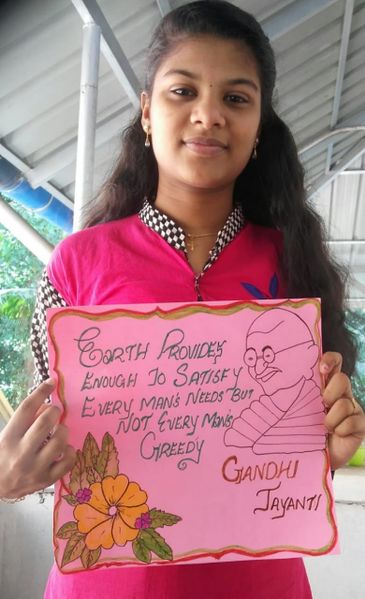 Earth Provides
Enough To Satisfy
Every Man's Needs But
Not Every Man's
Greedy
Gandhi
Jayanti